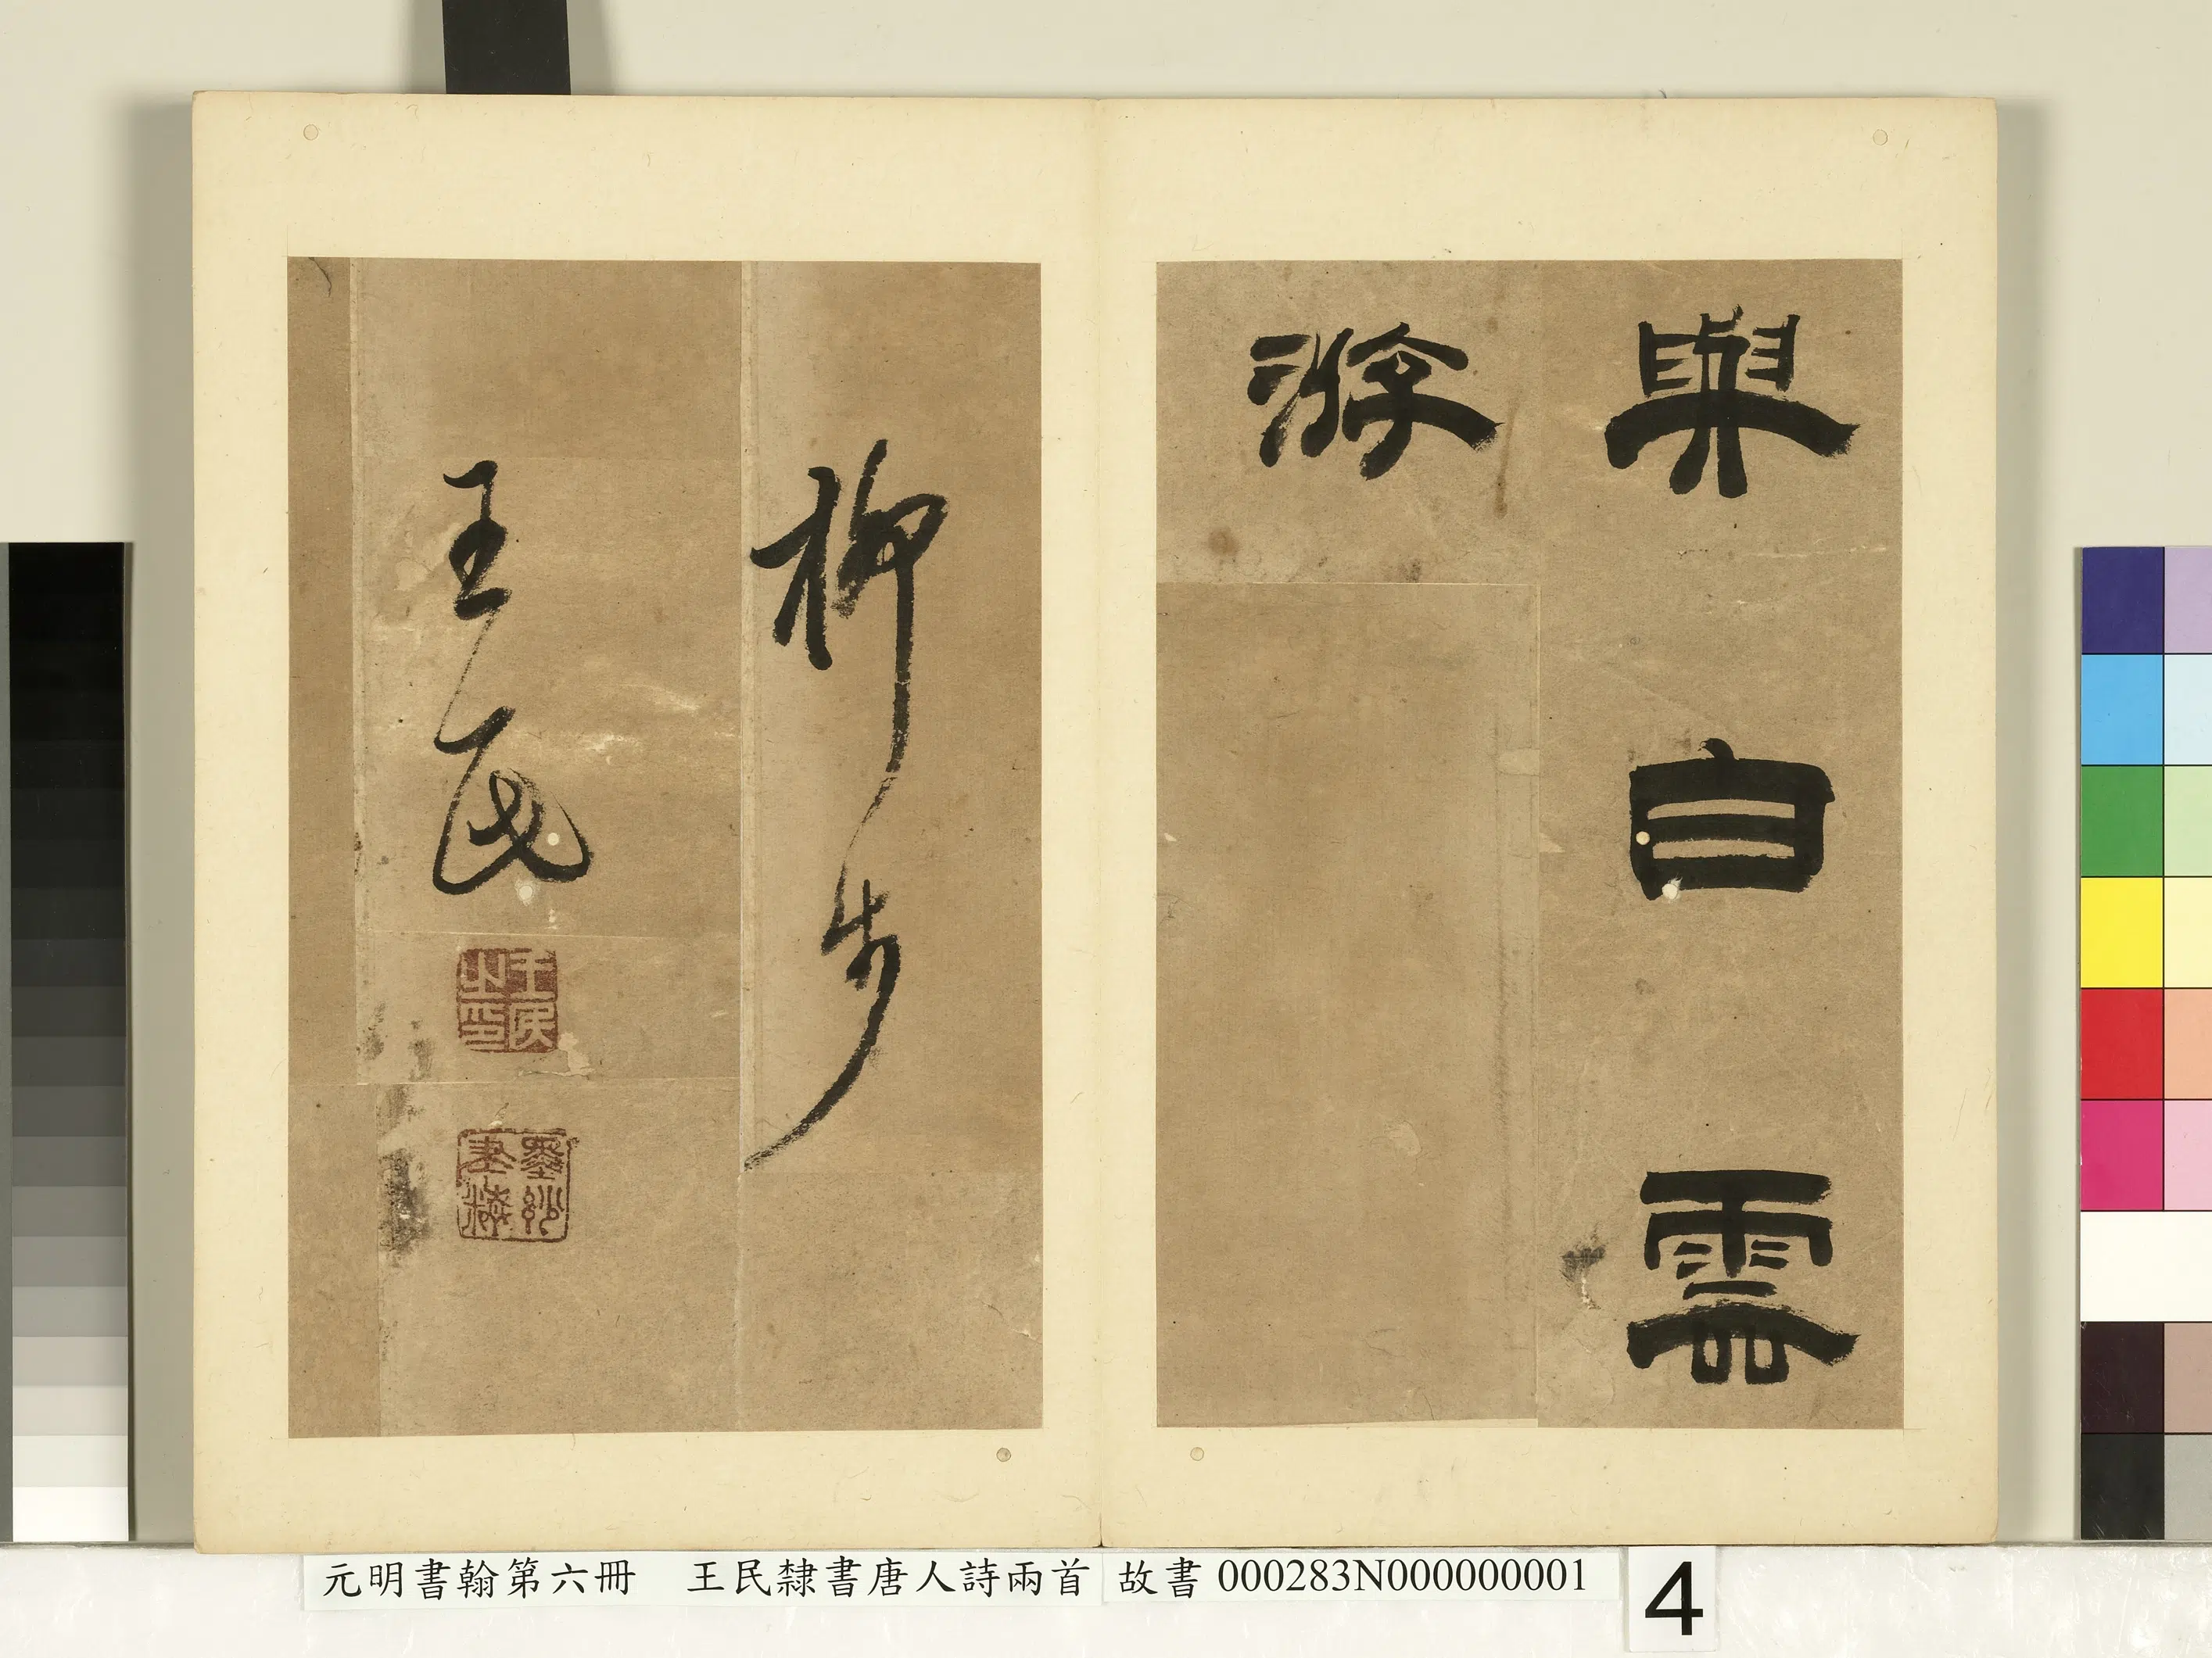 與白雲
游
柳步
王民
王民之印
元明書翰第六冊 王民隸書唐人詩兩首 故書000283N000000001
4